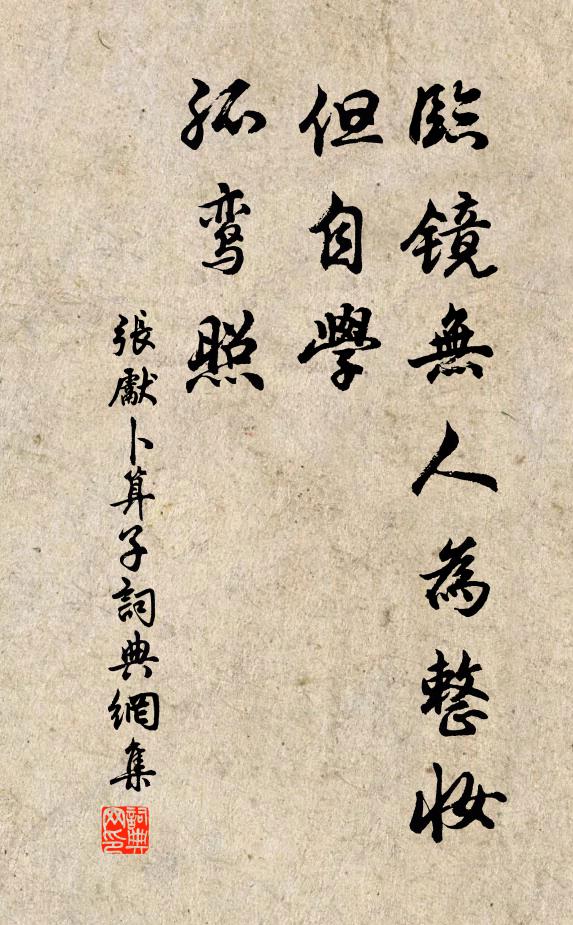 臨鏡無人為整妝
但自學
孤鸞照
張獻卜算子詞典網集
詞典网印